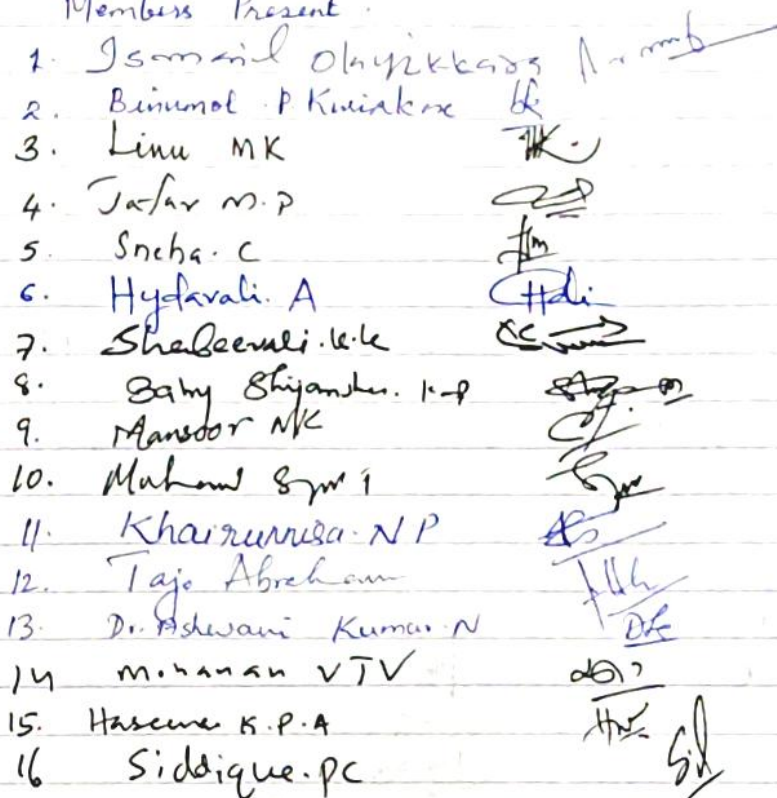 Members Present.
1. Ismail Olayikkara
2. Binumol P Kuriakose
3. Linu MK
4. Jafar M.P
5. Sneha. C
6. Hydarali. A
7. Shabeerali. k.k
8. Baby Shijansha. K.P
9. Mansoor NK
10.
11. Khairunnisa. N P
12. Tajo Abraham
13. Dr. Ashwani Kumar. N
14 Mohanan VTV
15. Haseena K.P.A
16 Siddique. PC